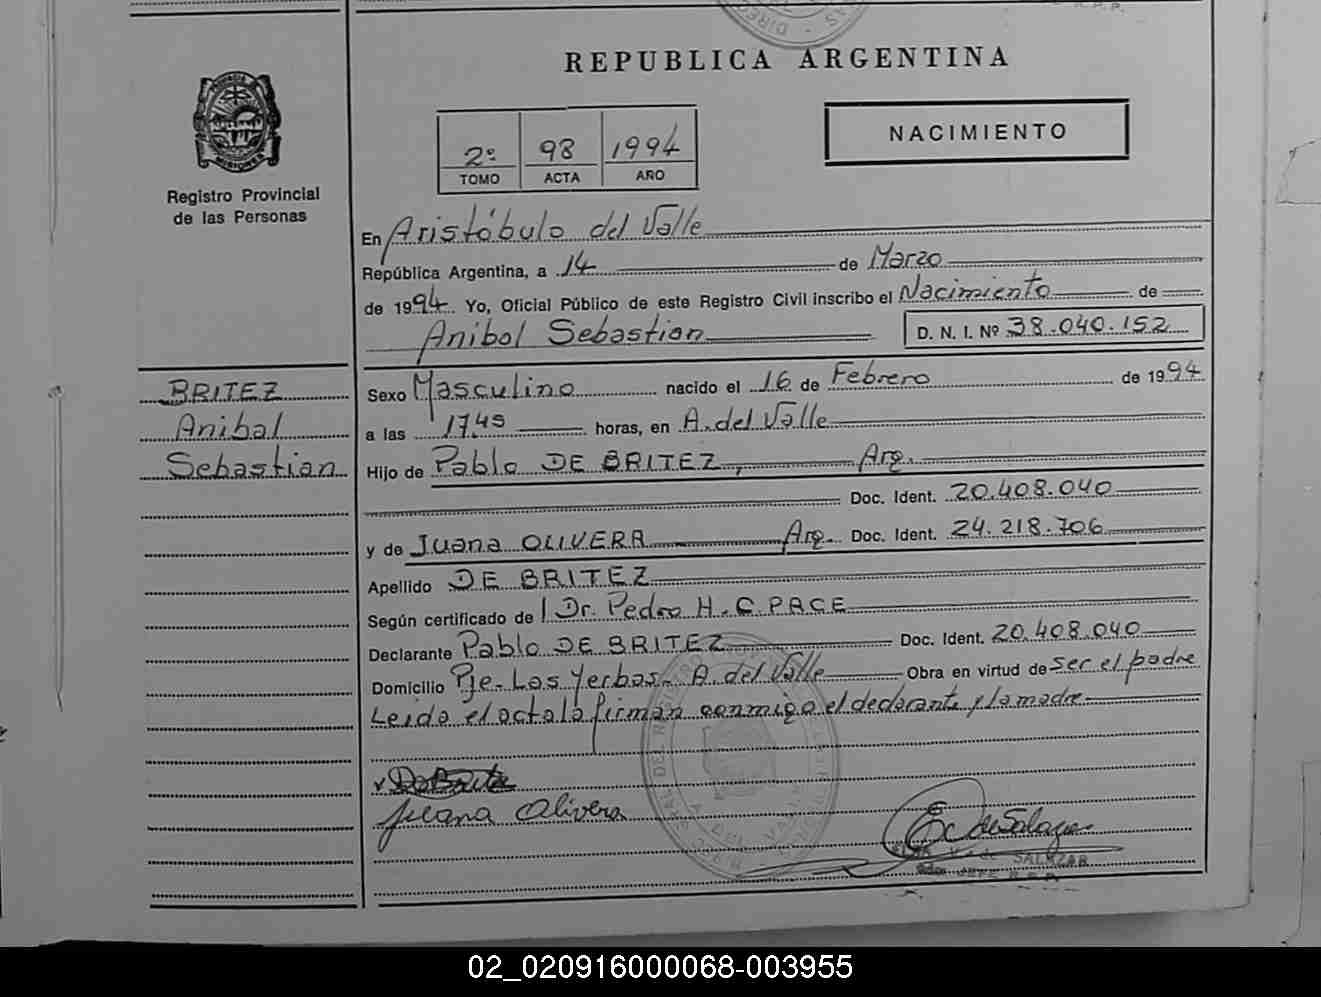 REPUBLICA ARGENTINA
NACIMIENTO
2º 98 1994
TOMO ACTA AÑO
MISIONES
Registro Provincial
de las Personas
En Aristóbulo del Valle
República Argentina, a 14 de Marzo
de 1994. Yo, Oficial Público de este Registro Civil inscribo el Nacimiento de
Anibal Sebastian D. N. I. Nº 38.040.152
BRITEZ
Anibal
Sebastian
Sexo Masculino nacido el 16 de Febrero de 1994
a las 17,45 horas, en A. del Valle
Hijo de Pablo DE BRITEZ, Arg.
Doc. Ident. 20.408.040
y de Juana OLIVERA Arg. Doc. Ident. 24.218.706
Apellido DE BRITEZ
Según certificado de Dr. Pedro H. C. PACE
Declarante Pablo DE BRITEZ Doc. Ident. 20.408.040
Domicilio Pje. Las Yerbas. A. del Valle Obra en virtud de ser el padre
Leida el acta la firman conmigo el declarante y la madre
Juana Olivera
SALAZAR
02_020916000068-003955